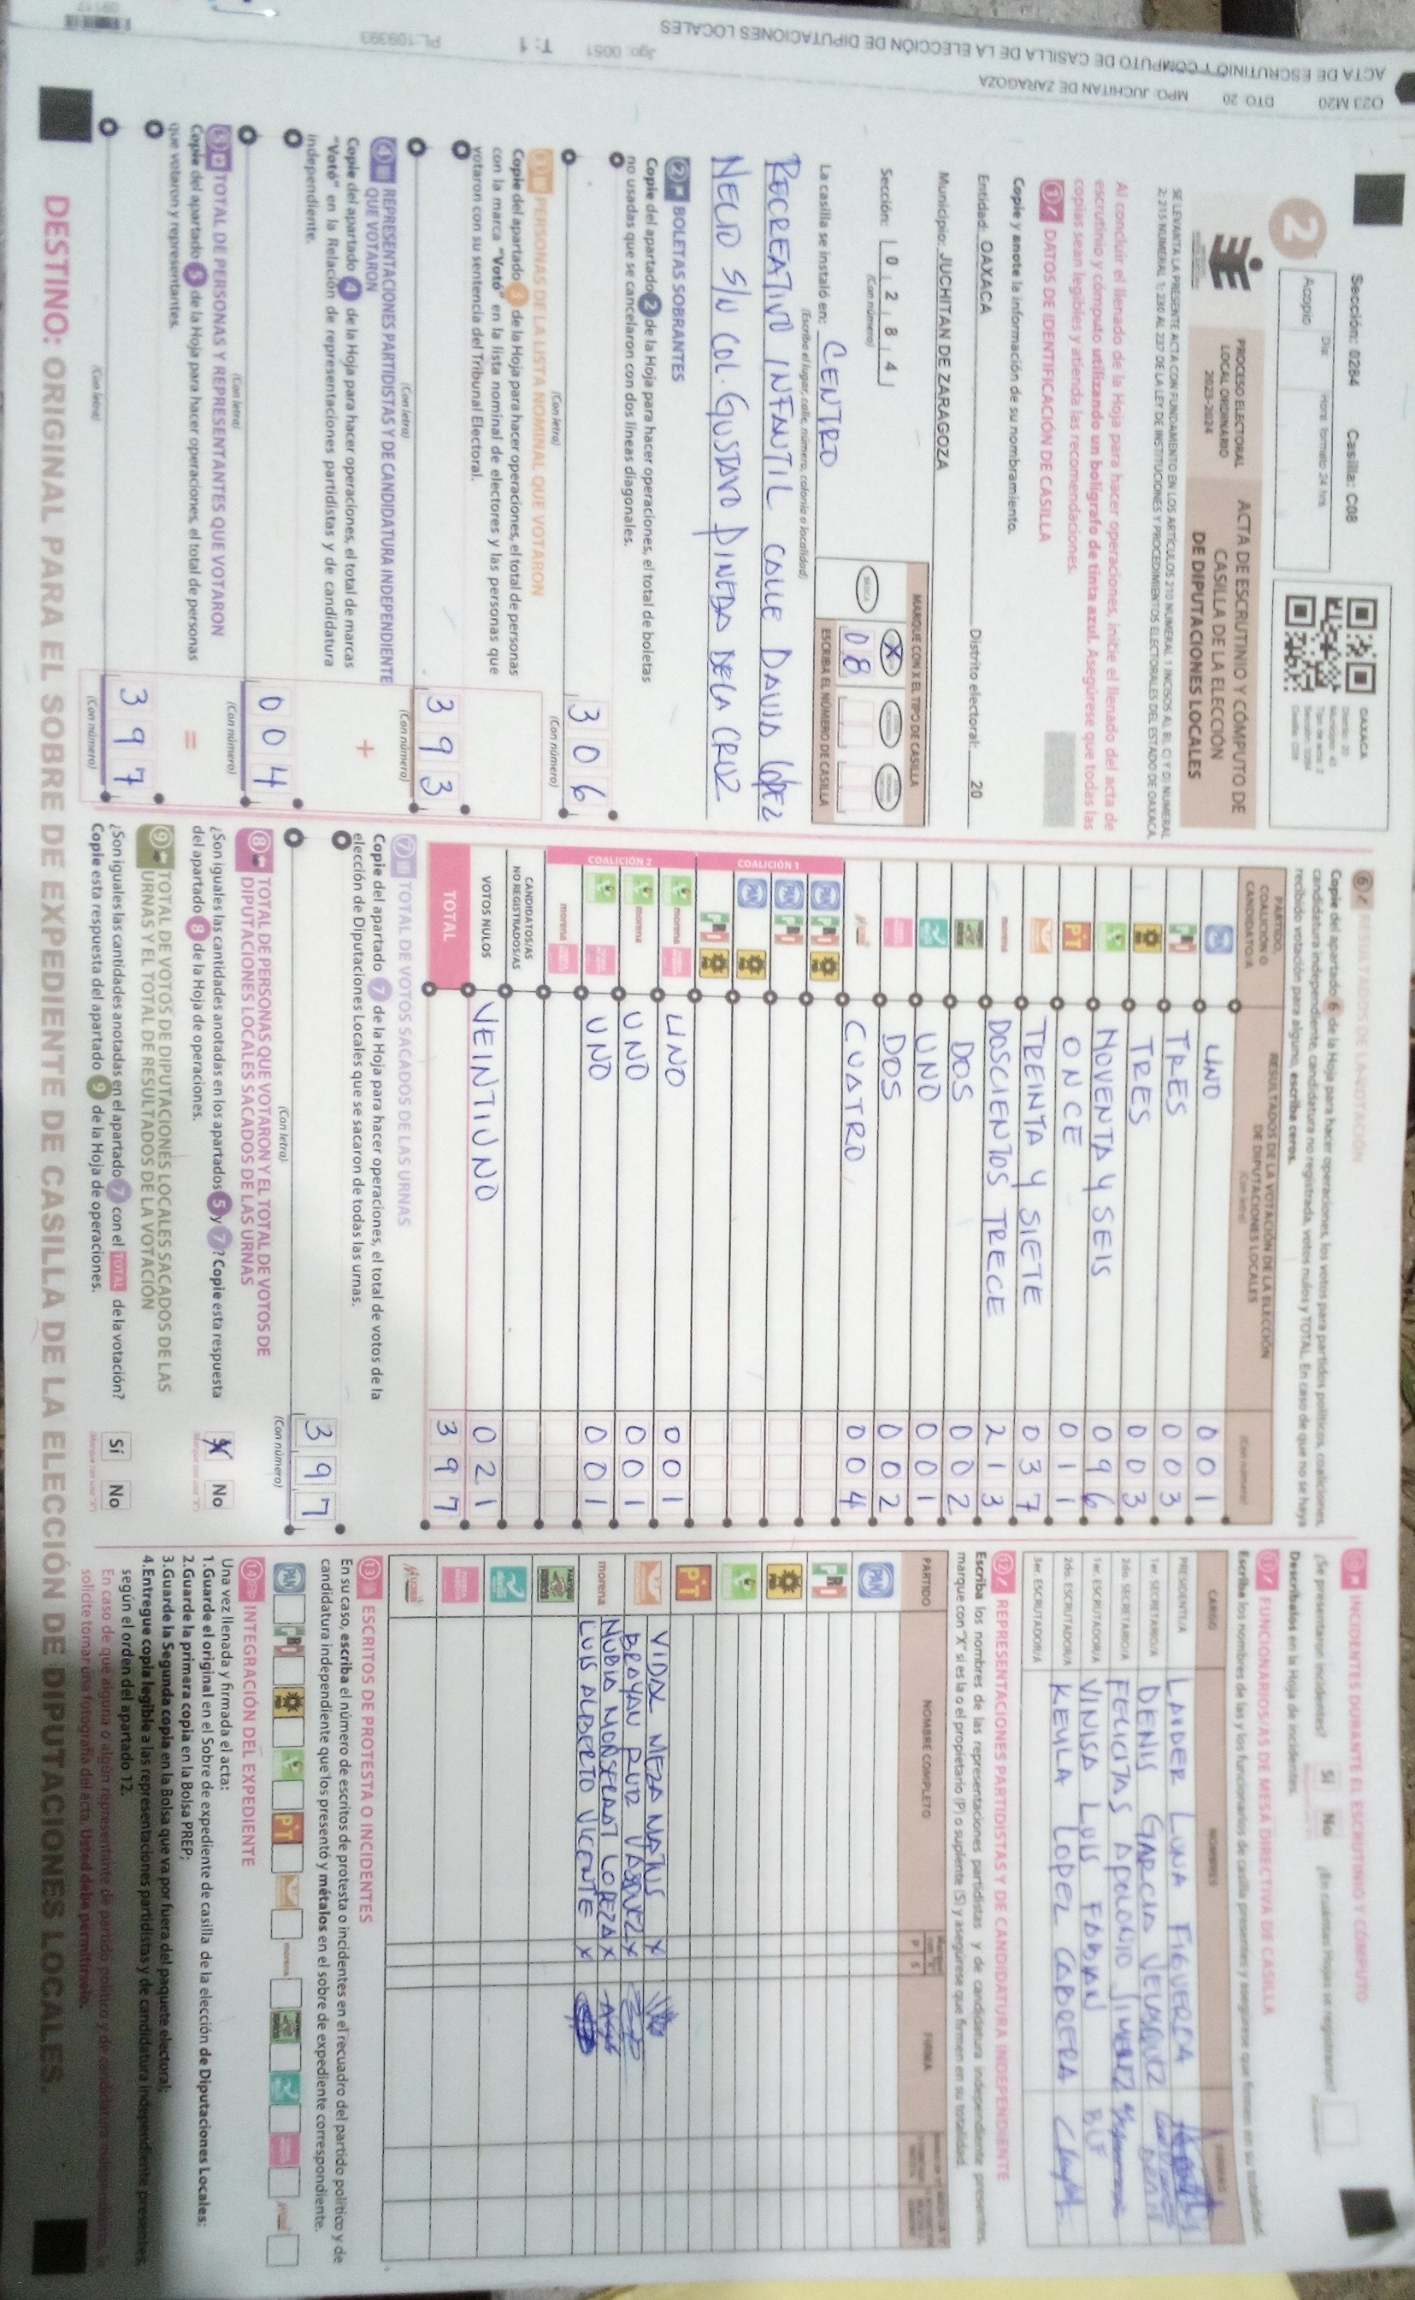 023 M20 DTO 20 MPO: JUCHITAN DE ZARAGOZA
ACTA DE ESCRUTINIO Y CÓMPUTO DE CASILLA DE LA ELECCIÓN DE DIPUTACIONES LOCALES
Jgo: 0051 T: 1 PL: 109393
Sección: 0284 Casilla: C08
Día: Hora: formato 24 hrs
Acopio
OAXACA
2
PROCESO ELECTORAL
LOCAL ORDINARIO
2023-2024
ACTA DE ESCRUTINIO Y CÓMPUTO DE
CASILLA DE LA ELECCIÓN
DE DIPUTACIONES LOCALES
SE LEVANTA LA PRESENTE ACTA CON FUNDAMENTO EN LOS ARTÍCULOS 210 NUMERAL 1 INCISOS A), B), C) Y D) NUMERAL
2; 215 NUMERAL 1; 230 AL 237 DE LA LEY DE INSTITUCIONES Y PROCEDIMIENTOS ELECTORALES DEL ESTADO DE OAXACA.
Al concluir el llenado de la Hoja para hacer operaciones, inicie el llenado del acta de
escrutinio y cómputo utilizando un bolígrafo de tinta azul. Asegúrese que todas las
copias sean legibles y atienda las recomendaciones.
1 DATOS DE IDENTIFICACIÓN DE CASILLA
Copie y anote la información de su nombramiento.
Entidad: OAXACA Distrito electoral: 20
Municipio: JUCHITAN DE ZARAGOZA
Sección: 0 2 8 4
(Con número)
MARQUE CON X EL TIPO DE CASILLA
BÁSICA X
08
ESCRIBA EL NÚMERO DE CASILLA
La casilla se instaló en: CENTRO
(Escriba el lugar, calle, número, colonia o localidad)
RECREATIVO INFANTIL CALLE DAVID LÓPEZ
NELIO S/N COL. GUSTAVO PINEDA DE LA CRUZ
2 BOLETAS SOBRANTES
Copie del apartado 2 de la Hoja para hacer operaciones, el total de boletas
no usadas que se cancelaron con dos líneas diagonales.
306
(Con letra) (Con número)
3 PERSONAS DE LA LISTA NOMINAL QUE VOTARON
Copie del apartado 3 de la Hoja para hacer operaciones, el total de personas
con la marca "Votó" en la lista nominal de electores y las personas que
votaron con su sentencia del Tribunal Electoral.
393
(Con letra) (Con número)
4 REPRESENTACIONES PARTIDISTAS Y DE CANDIDATURA INDEPENDIENTE
QUE VOTARON
Copie del apartado 4 de la Hoja para hacer operaciones, el total de marcas
"Votó" en la Relación de representaciones partidistas y de candidatura
independiente.
+
004
(Con letra) (Con número)
5 TOTAL DE PERSONAS Y REPRESENTANTES QUE VOTARON
Copie del apartado 5 de la Hoja para hacer operaciones, el total de personas
que votaron y representantes.
=
397
(Con letra) (Con número)
6 RESULTADOS DE LA VOTACIÓN
Copie del apartado 6 de la Hoja para hacer operaciones, los votos para partidos políticos, coaliciones,
candidatura independiente, candidatura no registrada, votos nulos y TOTAL. En caso de que no se haya
recibido votación para alguno, escriba ceros.
PARTIDO, COALICIÓN O CANDIDATO/A
RESULTADOS DE LA VOTACIÓN DE LA ELECCIÓN DE DIPUTACIONES LOCALES
(Con letra) (Con número)
PAN UNO 001
PRI TRES 003
PRD TRES 003
NOVENTA Y SEIS 096
PT ONCE 011
TREINTA Y SIETE 037
morena DOSCIENTOS TRECE 213
DOS 002
UNO 001
DOS 002
CUATRO 004
COALICIÓN 1
PAN PRI PRD
PAN PRI
PAN PRD
PRI PRD
COALICIÓN 2
morena UNO 001
morena UNO 001
UNO 001
morena
CANDIDATOS/AS
NO REGISTRADOS/AS
VOTOS NULOS VEINTIUNO 021
TOTAL 397
7 TOTAL DE VOTOS SACADOS DE LAS URNAS
Copie del apartado 7 de la Hoja para hacer operaciones, el total de votos de la
elección de Diputaciones Locales que se sacaron de todas las urnas.
397
(Con letra) (Con número)
8 TOTAL DE PERSONAS QUE VOTARON Y EL TOTAL DE VOTOS DE
DIPUTACIONES LOCALES SACADOS DE LAS URNAS
¿Son iguales las cantidades anotadas en los apartados 5 y 7? Copie esta respuesta
del apartado 8 de la Hoja de operaciones.
X No
9 TOTAL DE VOTOS DE DIPUTACIONES LOCALES SACADOS DE LAS
URNAS Y EL TOTAL DE RESULTADOS DE LA VOTACIÓN
¿Son iguales las cantidades anotadas en el apartado 7 con el TOTAL de la votación?
Copie esta respuesta del apartado 9 de la Hoja de operaciones.
Sí No
INCIDENTES DURANTE EL ESCRUTINIO Y CÓMPUTO
¿Se presentaron incidentes? Sí No ¿En cuántas hojas se registraron?
Descríbalos en la Hoja de incidentes.
FUNCIONARIOS/AS DE MESA DIRECTIVA DE CASILLA
Escriba los nombres de las y los funcionarios de casilla presentes y asegúrese que firmen en su totalidad.
CARGO NOMBRES
PRESIDENTE/A LANDER LUNA FIGUEROA
1er. SECRETARIO/A DENIS GARCIA VELASQUEZ
2do. SECRETARIO/A FELICITAS APOLONIO JIMENEZ
1er. ESCRUTADOR/A VINISA LUIS FABIAN
2do. ESCRUTADOR/A KEYLA LOPEZ CABRERA
3er. ESCRUTADOR/A
12 REPRESENTACIONES PARTIDISTAS Y DE CANDIDATURA INDEPENDIENTE
Escriba los nombres de las representaciones partidistas y de candidatura independiente presentes,
marque con "X" si es la o el propietario (P) o suplente (S) y asegúrese que firmen en su totalidad.
PARTIDO NOMBRE COMPLETO P S FIRMA
PAN
PRI
PRD
PT
VIDAL MEZA MATUS X
BRAYAN RUIZ VASQUEZ X
morena NUBIA MONSERRAT LOPEZ A X
LUIS ALBERTO VICENTE X
13 ESCRITOS DE PROTESTA O INCIDENTES
En su caso, escriba el número de escritos de protesta o incidentes en el recuadro del partido político y de
candidatura independiente que los presentó y métalos en el sobre de expediente correspondiente.
PAN PRI PRD PT morena
14 INTEGRACIÓN DEL EXPEDIENTE
Una vez llenada y firmada el acta:
1.Guarde el original en el Sobre de expediente de casilla de la elección de Diputaciones Locales;
2.Guarde la primara copia en la Bolsa PREP;
3.Guarde la Segunda copia en la Bolsa que va por fuera del paquete electoral;
4.Entregue copia legible a las representaciones partidistas y de candidatura independiente presentes,
según el orden del apartado 12.
En caso de que alguna o algún representante de partido político y de candidatura independiente
solicite tomar una fotografía del acta, Usted debe permitírselo.
DESTINO: ORIGINAL PARA EL SOBRE DE EXPEDIENTE DE CASILLA DE LA ELECCIÓN DE DIPUTACIONES LOCALES.